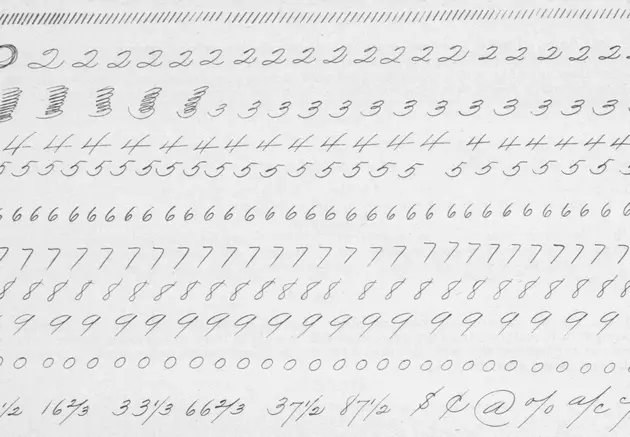 2 2 2 2 2 2 2 2 2 2 2 2 2 2 2 2 2 2 2
3 3 3 3 3 3 3 3 3 3 3 3 3
4 4 4 4 4 4 4 4 4 4 4 4 4 4 4 4 4 4 4
5 5 5 5 5 5 5 5 5 5 5 5 5 5 5 5 5 5 5 5 5
6 6 6 6 6 6 6 6 6 6 6 6 6 6 6 6 6 6 6 6 6 6 6 6 6 6 6 6 6 6 6 6 6
7 7 7 7 7 7 7 7 7 7 7 7 7 7 7 7 7 7 7 7 7 7 7 7 7 7
8 8 8 8 8 8 8 8 8 8 8 8 8 8 8 8 8 8 8 8 8 8 8 8 8 8 8 8
9 9 9 9 9 9 9 9 9 9 9 9 9 9 9 9 9 9 9 9 9
0 0 0 0 0 0 0 0 0 0 0 0 0 0 0 0 0 0 0 0 0 0 0 0 0 0 0 0
1/2 16 2/3 33 1/3 66 2/3 37 1/2 87 1/2 $ ¢ @ % a/c